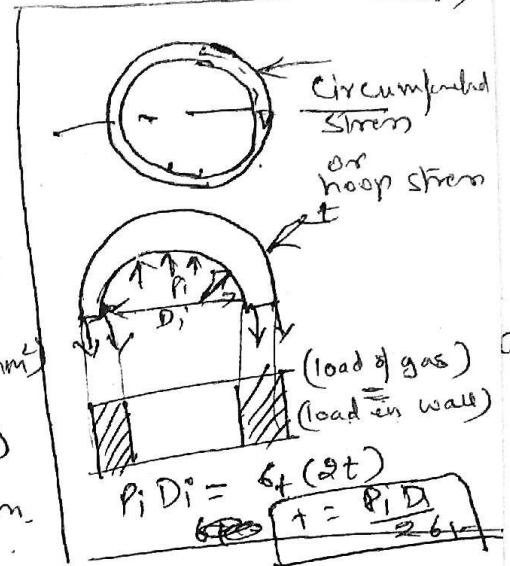 Circumferential
Stress
or
hoop stress
t
Pi
Di
mm²)
(load of gas)
=
(load in wall)
Pi Di = σt (2t)
t = Pi Di / 2σt